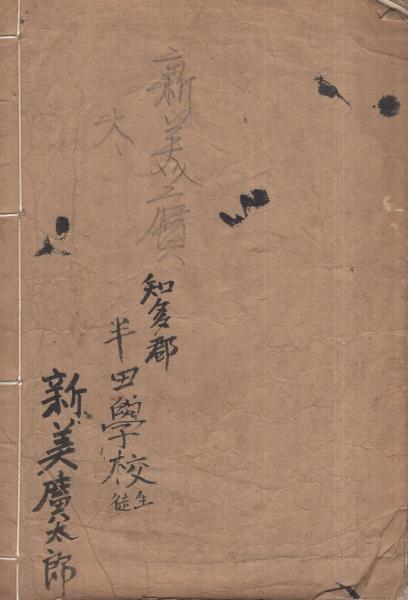 新美
知多郡
半田學校
生徒
新美廣太郎